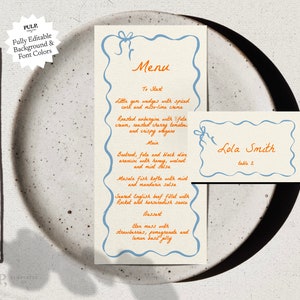 PULP.
Fully Editable
Background &
Font Colors
Menu
To Start
Little gem wedges with spiced
curd and miso-lime crema
Roasted aubergine with feta
cream, roasted cherry tomato,
and crispy oregano
Main
Beetroot, feta and black olive
version with honey, walnut
and mint skins
Masala fish kofta with mint
and mandarin salsa
Seared English beef fillet with
Rocket and horseradish sauce
Dessert
Eton mess with
strawberries, pomegranate and
lemon basil jelly
Lola Smith
table 2